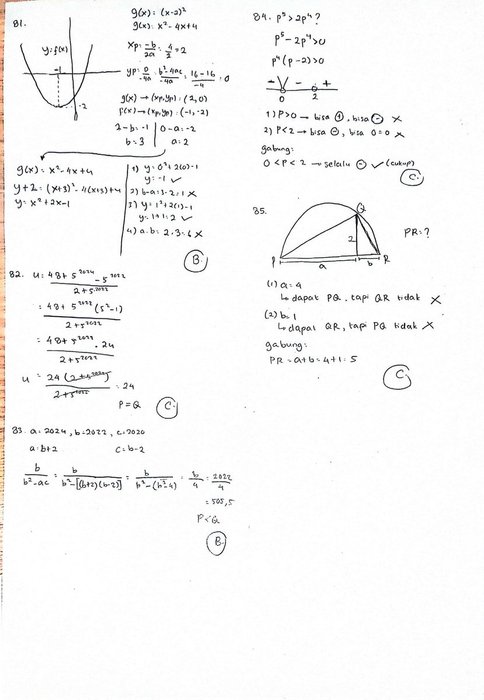 81.
g(x) : (x-2)²
g(x) : x² - 4x + 4
xp : -b/2a : 4/2 = 2
yp : D/-4a : b²-4ac/-4a : 16-16/-4 : 0
g(x) → (xp, yp) : (2, 0)
f(x) → (xp, yp) : (-1, -2)
y = f(x)
-1
-2
2 - b = -1 | 0 - a = -2
b = 3 | a = 2
g(x) = x² - 4x + 4
y + 2 = (x+3)² - 4(x+3) + 4
y = x² + 2x - 1
1) y = 0² + 2(0) - 1
y = -1 ✓
2) b - a = 3 - 2 = 1 ✗
3) y = 1² + 2(1) - 1
y = 1 + 1 = 2 ✓
4) a.b = 2.3 = 6 ✗
B
82. u = 48 + 5²⁰²⁴ - 5²⁰²² / 2 + 5²⁰²²
= 48 + 5²⁰²² (5² - 1) / 2 + 5²⁰²²
= 48 + 5²⁰²² . 24 / 2 + 5²⁰²²
u = 24 (2 + 5²⁰²²) / 2 + 5²⁰²² = 24
P = Q
C
83. a = 2024, b = 2022, c = 2020
a = b+2 c = b-2
b / b² - ac = b / b² - [(b+2)(b-2)] = b / b² - (b² - 4) = b/4 = 2022/4
= 505,5
P < Q
B
84. p⁵ > 2p⁴ ?
p⁵ - 2p⁴ > 0
p⁴ (p - 2) > 0
- - +
0 2
1) P > 0 → bisa ⊕, bisa ⊖ ✗
2) P < 2 → bisa ⊖, bisa 0 = 0 ✗
gabung:
0 < P < 2 → selalu ⊖ ✓ (cukup)
C
85.
Q
PR = ?
2
P a b R
(1) a = 4
↳ dapat PQ, tapi QR tidak ✗
(2) b = 1
↳ dapat QR, tapi PQ tidak ✗
gabung:
PR = a + b = 4 + 1 = 5
C